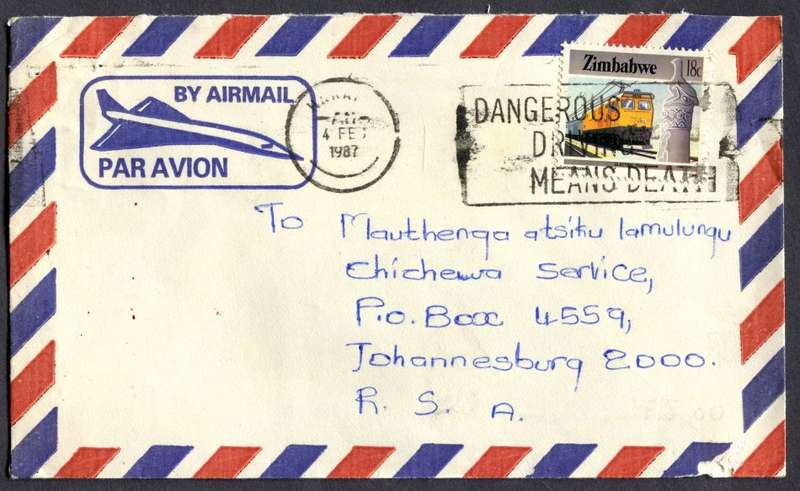 BY AIRMAIL
PAR AVION
4 FE
1987
Zimbabwe 18c
DANGEROUS
MEANS DEATH
To Mauthenga atsiku lamulungu
Chichewa Service,
P.O. Box 4559,
Johannesburg 2000.
R. S. A.